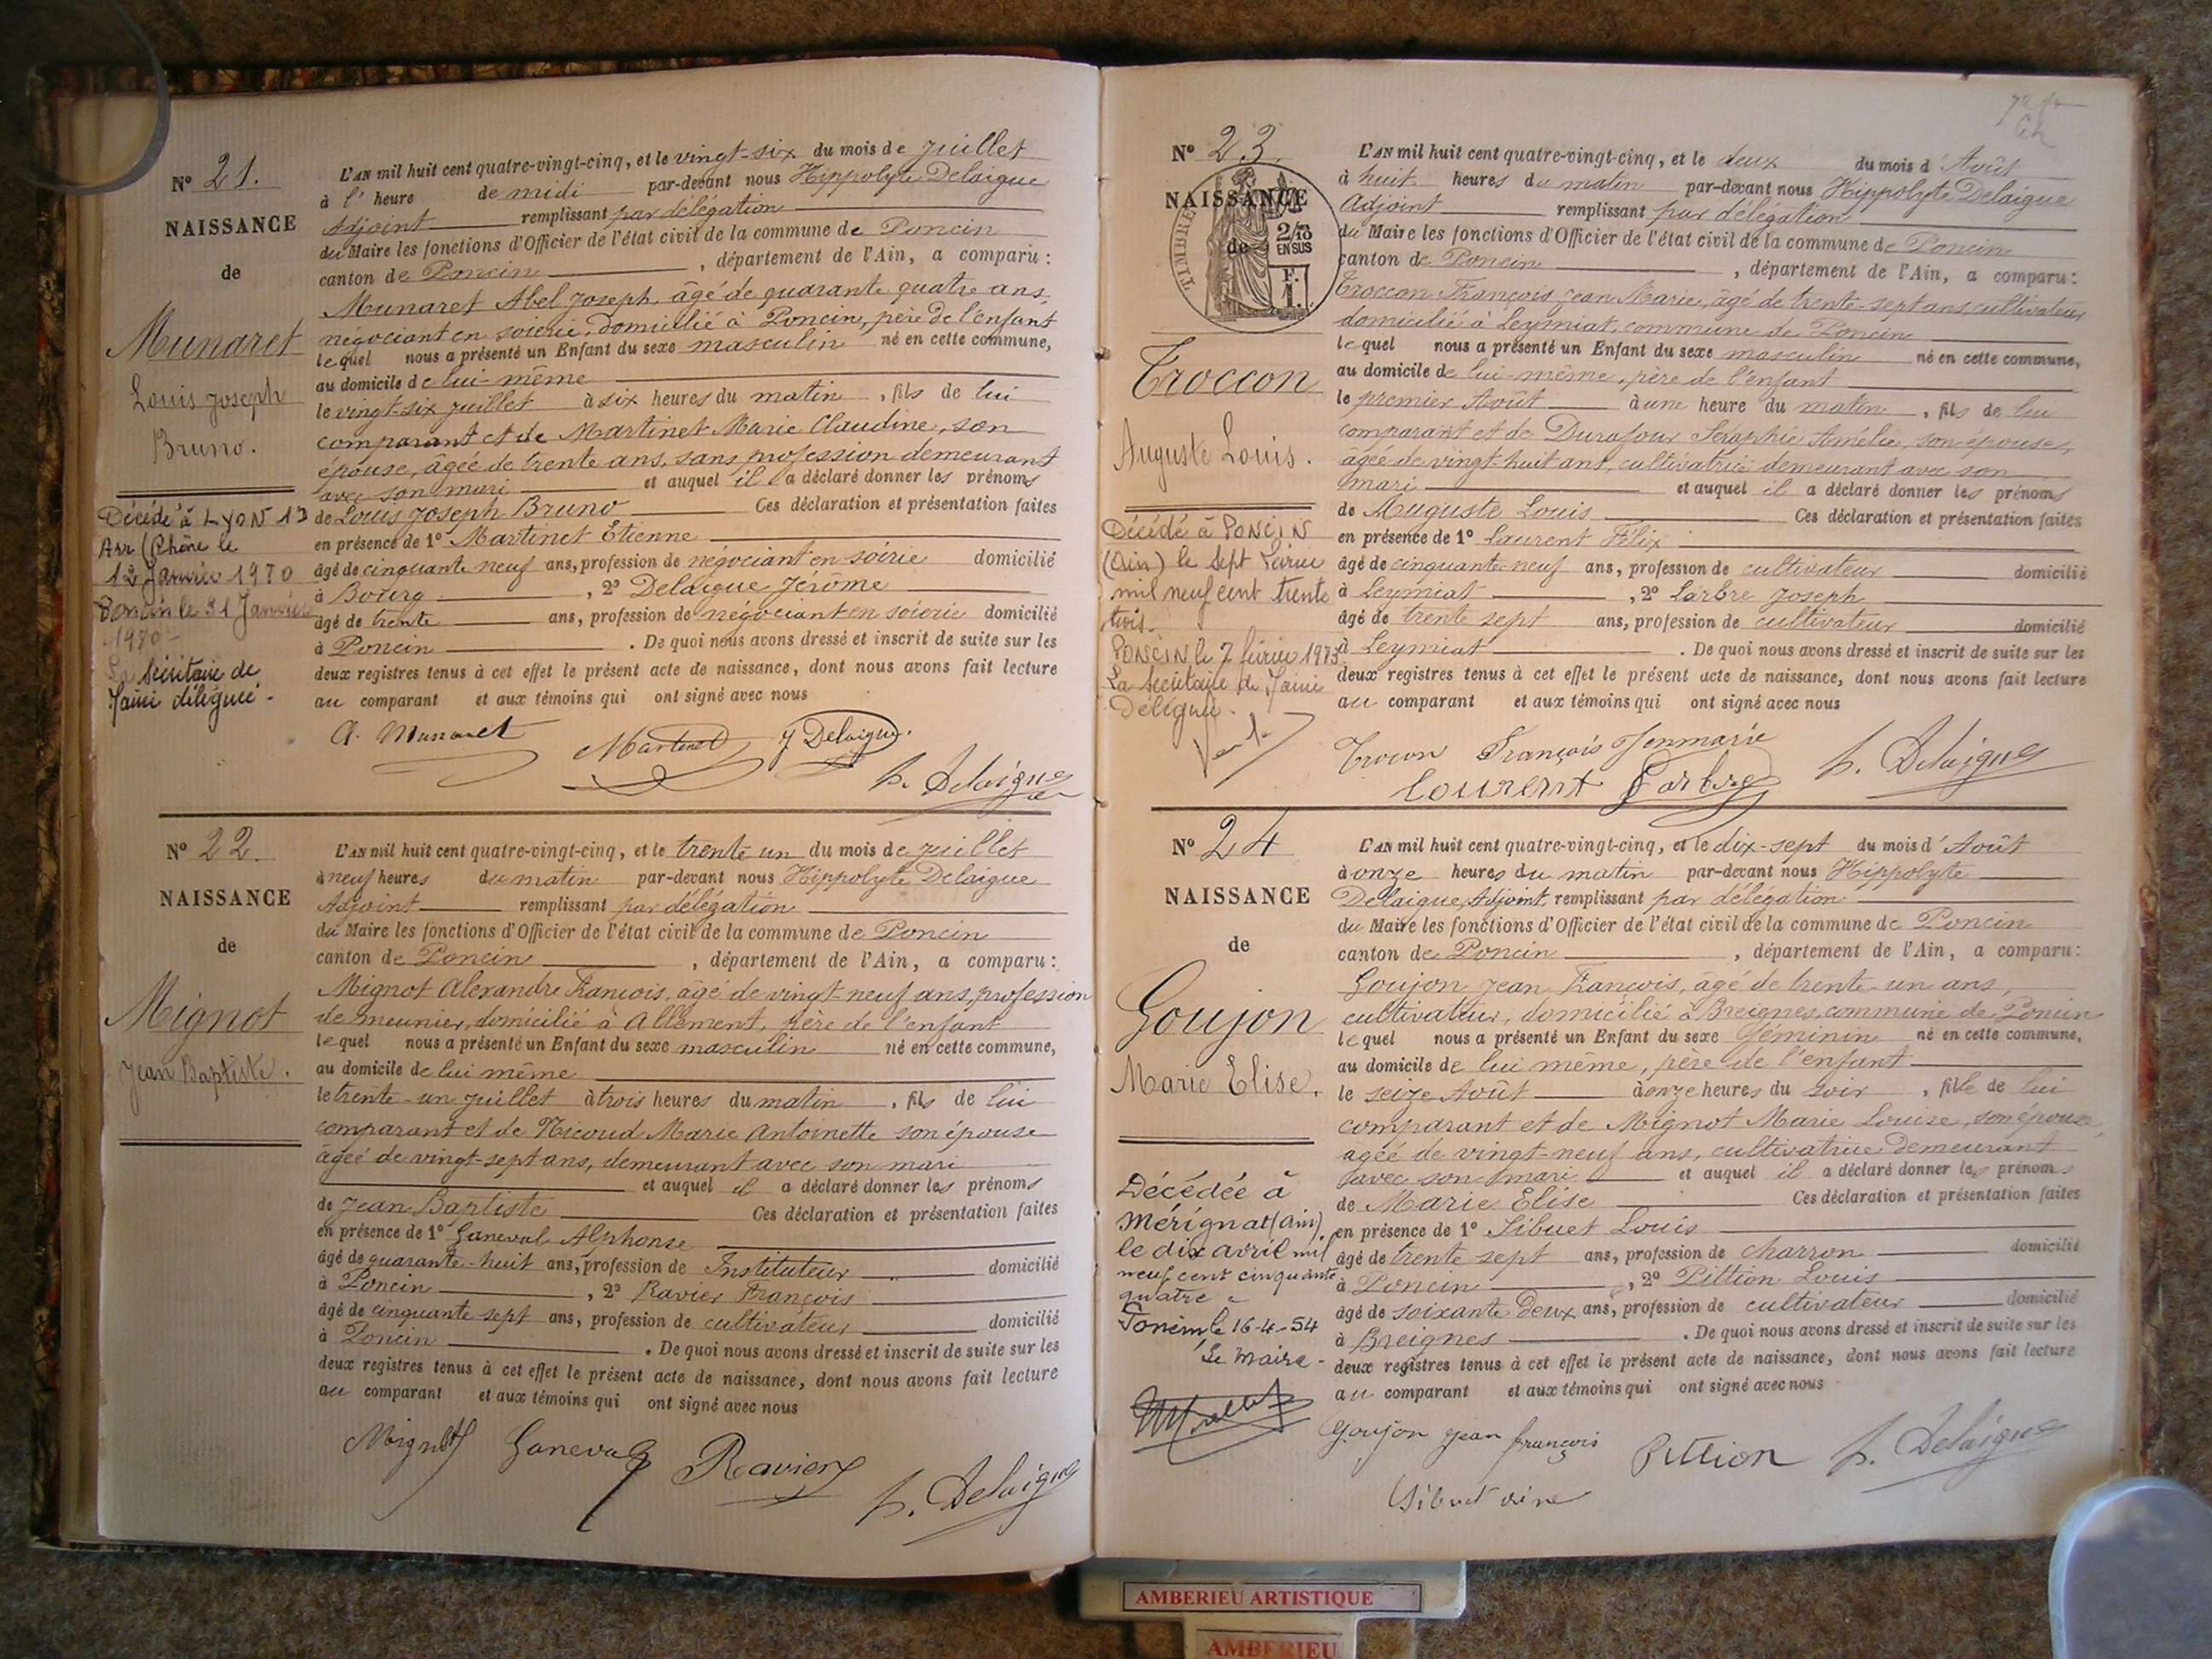 N° 21.
NAISSANCE
de
Munaret
Louis Joseph
Bruno.
Décédé à LYON 13
Arr. (Rhône le
12 Janvier 1970
Poncin le 21 Janvier
1980
La Secrétaire de
Mairie déléguée -
L'AN mil huit cent quatre-vingt-cinq, et le vingt-six du mois de Juillet
à l' heure de midi par-devant nous Hippolyte Delaigue
Adjoint remplissant par délégation
du Maire les fonctions d'Officier de l'état civil de la commune de Poncin
canton de Poncin , département de l'Ain, a comparu :
Munaret Abel Joseph, âgé de quarante quatre ans,
négociant en soierie, domicilié à Poncin, père de l'enfant
lequel nous a présenté un Enfant du sexe masculin né en cette commune,
au domicile de lui-même
le vingt-six juillet à six heures du matin , fils de lui
comparant et de Martinet Marie Claudine, son
épouse, âgée de trente ans, sans profession demeurant
avec son mari et auquel il a déclaré donner les prénoms
de Louis Joseph Bruno Ces déclaration et présentation faites
en présence de 1° Martinet Etienne
âgé de cinquante neuf ans, profession de négociant en soirie domicilié
à Bourg , 2° Delaigue Jérôme
âgé de trente ans, profession de négociant en soierie domicilié
à Poncin . De quoi nous avons dressé et inscrit de suite sur les
deux registres tenus à cet effet le présent acte de naissance, dont nous avons fait lecture
au comparant et aux témoins qui ont signé avec nous
A. Munaret Martinet J Delaigue.
h. Delaigue
N° 22.
NAISSANCE
de
Mignot
Jean Baptiste.
L'AN mil huit cent quatre-vingt-cinq, et le trente un du mois de juillet
à neuf heures du matin par-devant nous Hippolyte Delaigue
Adjoint remplissant par délégation
du Maire les fonctions d'Officier de l'état civil de la commune de Poncin
canton de Poncin , département de l'Ain, a comparu :
Mignot Alexandre François, âgé de vingt-neuf ans, profession
de meunier, domicilié à Allement, père de l'enfant
lequel nous a présenté un Enfant du sexe masculin né en cette commune,
au domicile de lui même
le trente-un juillet à trois heures du matin , fils de lui
comparant et de Nicoud Marie Antoinette son épouse
âgée de vingt-sept ans, demeurant avec son mari
et auquel il a déclaré donner les prénoms
de Jean Baptiste Ces déclaration et présentation faites
en présence de 1° Ganeval Alphonse
âgé de quarante-huit ans, profession de Instituteur domicilié
à Poncin , 2° Ravier François
âgé de cinquante sept ans, profession de cultivateur domicilié
à Poncin . De quoi nous avons dressé et inscrit de suite sur les
deux registres tenus à cet effet le présent acte de naissance, dont nous avons fait lecture
au comparant et aux témoins qui ont signé avec nous
Mignot Ganeval Ravier
h. Delaigue
N° 23.
NAISSANCE
de
TIMBRE
2/10
EN SUS
F.
1.
Troccon
Auguste Louis.
Décédé à PONCIN
(Ain) le sept Février
mil neuf cent trente
trois.
PONCIN le 7 février 1973
La Secrétaire de Mairie
Déléguée -
L'AN mil huit cent quatre-vingt-cinq, et le deux du mois d'Août
à huit heures du matin par-devant nous Hippolyte Delaigue
Adjoint remplissant par délégation
du Maire les fonctions d'Officier de l'état civil de la commune de Poncin
canton de Poncin , département de l'Ain, a comparu :
Troccon François Jean Marie, âgé de trente-sept ans, cultivateur
domicilié à Leymiat, commune de Poncin
lequel nous a présenté un Enfant du sexe masculin né en cette commune,
au domicile de lui-même, père de l'enfant
le premier Août à une heure du matin , fils de lui
comparant et de Durafour Séraphie Amélie, son épouse,
âgée de vingt-huit ans, cultivatrice demeurant avec son
mari et auquel il a déclaré donner les prénoms
de Auguste Louis Ces déclaration et présentation faites
en présence de 1° Laurent Félix
âgé de cinquante-neuf ans, profession de cultivateur domicilié
à Leymiat , 2° Larbre Joseph
âgé de trente sept ans, profession de cultivateur domicilié
à Leymiat . De quoi nous avons dressé et inscrit de suite sur les
deux registres tenus à cet effet le présent acte de naissance, dont nous avons fait lecture
au comparant et aux témoins qui ont signé avec nous
Trocon François Jenmarie
Lourent Larbre h. Delaigue
N° 24
NAISSANCE
de
Goujon
Marie Elise.
Décédée à
Mérignat (ain)
le dix avril mil
neuf cent cinquante
quatre
Poncin le 16-4-54
Le Maire -
L'AN mil huit cent quatre-vingt-cinq, et le dix-sept du mois d'Août
à onze heures du matin par-devant nous Hippolyte
Delaigue, Adjoint, remplissant par délégation
du Maire les fonctions d'Officier de l'état civil de la commune de Poncin
canton de Poncin , département de l'Ain, a comparu :
Goujon Jean François, âgé de trente-un ans,
cultivateur, domicilié à Breignes, commune de Poncin
lequel nous a présenté un Enfant du sexe féminin né en cette commune,
au domicile de lui même, père de l'enfant
le seize Août à onze heures du soir , fille de lui
comparant et de Mignot Marie Louise, son épouse,
âgée de vingt-neuf ans, cultivatrice demeurant
avec son mari et auquel il a déclaré donner les prénoms
de Marie Elise Ces déclaration et présentation faites
en présence de 1° Sibuet Louis
âgé de trente sept ans, profession de charron domicilié
à Poncin , 2° Pittion Louis
âgé de soixante deux ans, profession de cultivateur domicilié
à Breignes . De quoi nous avons dressé et inscrit de suite sur les
deux registres tenus à cet effet le présent acte de naissance, dont nous avons fait lecture
au comparant et aux témoins qui ont signé avec nous
Goujon Jean françois Pittion h. Delaigue
Sibuet
AMBERIEU ARTISTIQUE
AMBERIEU